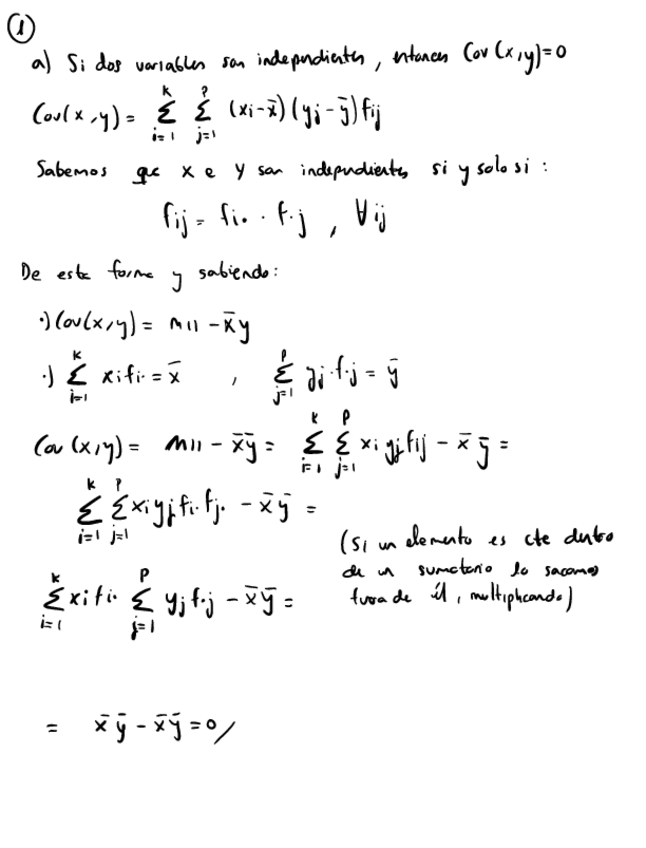 ①
a) Si dos variables son independientes, entonces Cov(x,y)=0
Cov(x,y) = Σ_{i=1}^{k} Σ_{j=1}^{p} (xi-x̄)(yj-ȳ)fij
Sabemos que x e y son independientes si y solo si:
fij = fi. · f.j , ∀ij
De esta forma y sabiendo:
·) Cov(x,y) = m11 - x̄y
·) Σ_{i=1}^{k} xifi. = x̄ , Σ_{j=1}^{p} yj·f.j = ȳ
Cov(x,y) = m11 - x̄ȳ = Σ_{i=1}^{k} Σ_{j=1}^{p} xi yj fij - x̄ ȳ =
Σ_{i=1}^{k} Σ_{j=1}^{p} xi yj fi. fj. - x̄ȳ =
(Si un elemento es cte dentro
de un sumatorio lo sacamos
fuera de él, multiplicando)
Σ_{i=1}^{k} xi fi. Σ_{j=1}^{p} yj f.j - x̄ȳ =
= x̄ ȳ - x̄ȳ = 0/